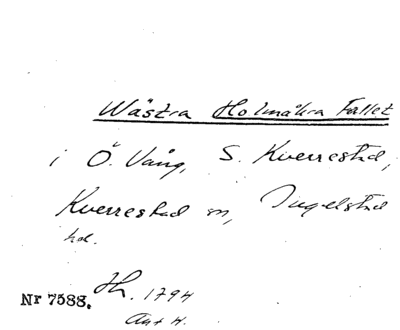 Wästra Holmåkra Fallet
i Ö. Vång, S. Kverrestad,
Kverrestad sn, Ingelstad
hd.
Hh. 1794
Nr 7588.
Akt 4.